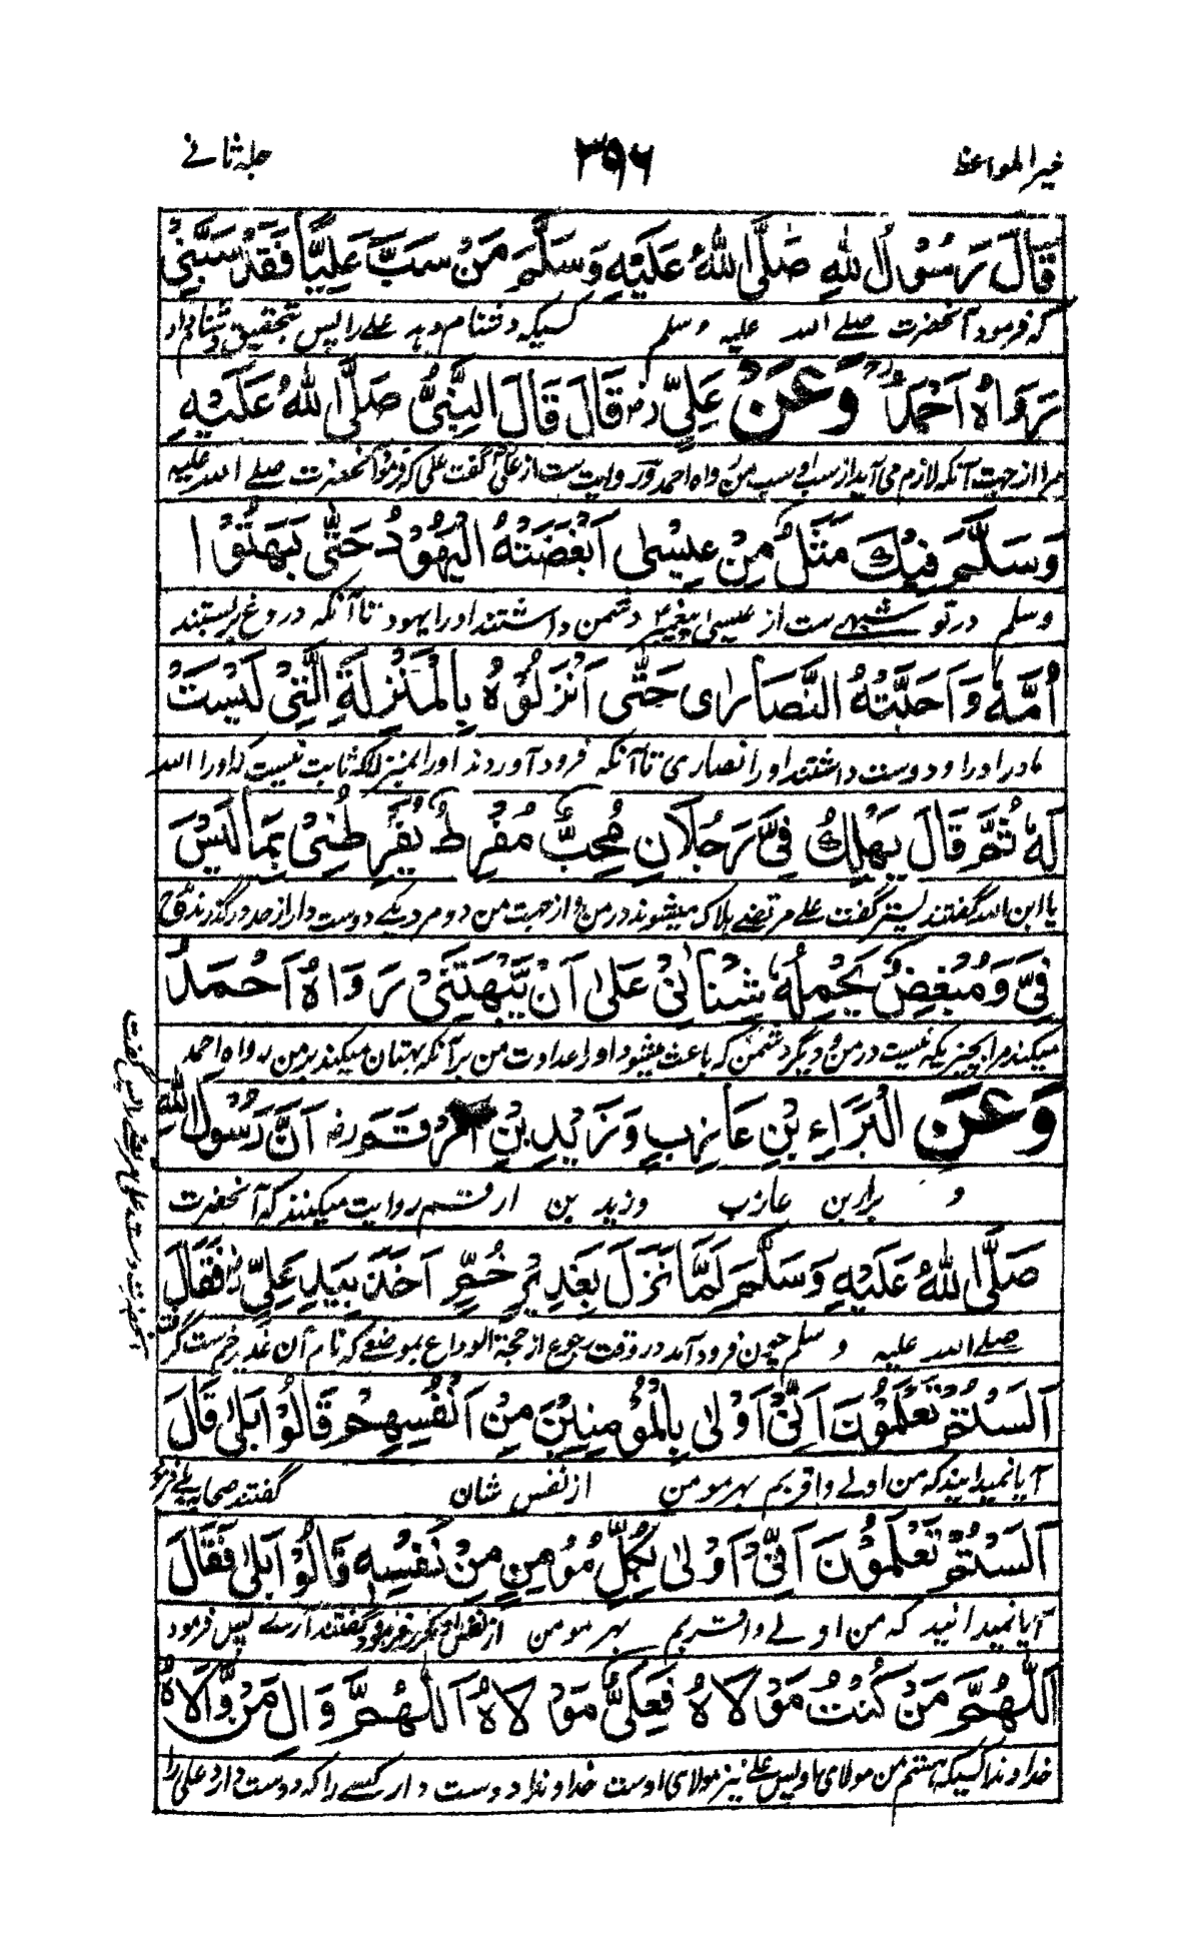 خیر المواعظ ۳۹۶ جلد ثانے
قَالَ رَسُوْلُ اللّٰهِ صَلَّی اللّٰهُ عَلَيْهِ وَسَلَّمَ مَنْ سَبَّ عَلِيًّا فَقَدْ سَبَّنِیْ
که فرمود آنحضرت صلے اللہ علیہ وسلم کسیکه دشنام دہد علے را پس بتحقیق دشنام داد
رَوَاهُ اَحْمَدُ وَعَنْ عَلِیٍّ رض قَالَ قَالَ النَّبِیُّ صَلَّی اللّٰهُ عَلَيْهِ
مرا از جہت آنکه لازم می آید از سب او سب من رواه احمد و روایت ست از علی گفت علی که فرمود آنحضرت صلے اللہ علیہ
وَسَلَّمَ فِيْكَ مَثَلٌ مِنْ عِيْسٰی اَبْغَضَتْهُ الْيَهُوْدُ حَتّٰی بَهَتُوْا
وسلم در تو شبہے ست از عیسی پیغمبر دشمن داشتند اورا یہود تا آنکه دروغ بربستند
اُمَّهٗ وَاَحَبَّتْهُ النَّصَارٰی حَتّٰی اَنْزَلُوْهُ بِالْمَنْزِلَةِ الَّتِیْ لَيْسَتْ
مادر اورا و دوست داشتند اورا نصاری تا آنکه فرود آوردند اورا بمنزلتکه ثابت نیست که اورا اللہ
لَهٗ ثُمَّ قَالَ يَهْلِكُ فِیَّ رَجُلَانِ مُحِبٌّ مُفْرِطٌ يُقَرِّظُنِیْ بِمَا لَيْسَ
یا ابن اللہ گفتند پستر گفت علے مرتضے ہلاک میشوند در من و از جہت من دو مرد یکے دوست دار از حد درگذرنده مدح
فِیَّ وَمُبْغِضٌ يَحْمِلُهٗ شَنْاٰنِیْ عَلٰی اَنْ يَّبْهَتَنِیْ رَوَاهُ اَحْمَدُ
میکند مرا بچیزیکه نیست در من و دیگر دشمن که باعث میشود او را عداوت من بر آنکه بہتان میکند بر من رواه احمد
وَعَنِ الْبَرَاءِ بْنِ عَازِبٍ وَزَيْدِ بْنِ اَرْقَمَ رض اَنَّ رَسُوْلَ اللّٰهِ
و براء بن عازب وزید بن ارقم روایت میکنند که آنحضرت
صَلَّی اللّٰهُ عَلَيْهِ وَسَلَّمَ لَمَّا نَزَلَ بِغَدِيْرِ خُمٍّ اَخَذَ بِيَدِ عَلِیٍّ رض فَقَالَ
صلے اللہ علیہ وسلم چون فرود آمد در وقت رجوع از حجة الوداع بموضعے که نام آن غدیر خم ست گرفت
آنحضرت دست علی مرتضے را پس گفت
اَلَسْتُمْ تَعْلَمُوْنَ اَنِّیْ اَوْلٰی بِالْمُؤْمِنِيْنَ مِنْ اَنْفُسِهِمْ قَالُوْا بَلٰی قَالَ
آیا نمیدانید که من اولے و اقربم بہر مومن از نفس شان گفتند صحابه بلے فرمود
اَلَسْتُمْ تَعْلَمُوْنَ اَنِّیْ اَوْلٰی بِكُلِّ مُؤْمِنٍ مِنْ نَفْسِهٖ قَالُوْا بَلٰی فَقَالَ
آیا نمیدانید که من اولے و اقربم بہر مومن از نفس او گفتند آرے پس فرمود
اَللّٰهُمَّ مَنْ كُنْتُ مَوْلَاهُ فَعَلِیٌّ مَوْلَاهُ اَللّٰهُمَّ وَالِ مَنْ وَّالَاهُ
خداوندا کسیکه ہستم من مولای او پس علے نیز مولای اوست خداوندا دوست دار کسے را که دوست دارد علی را